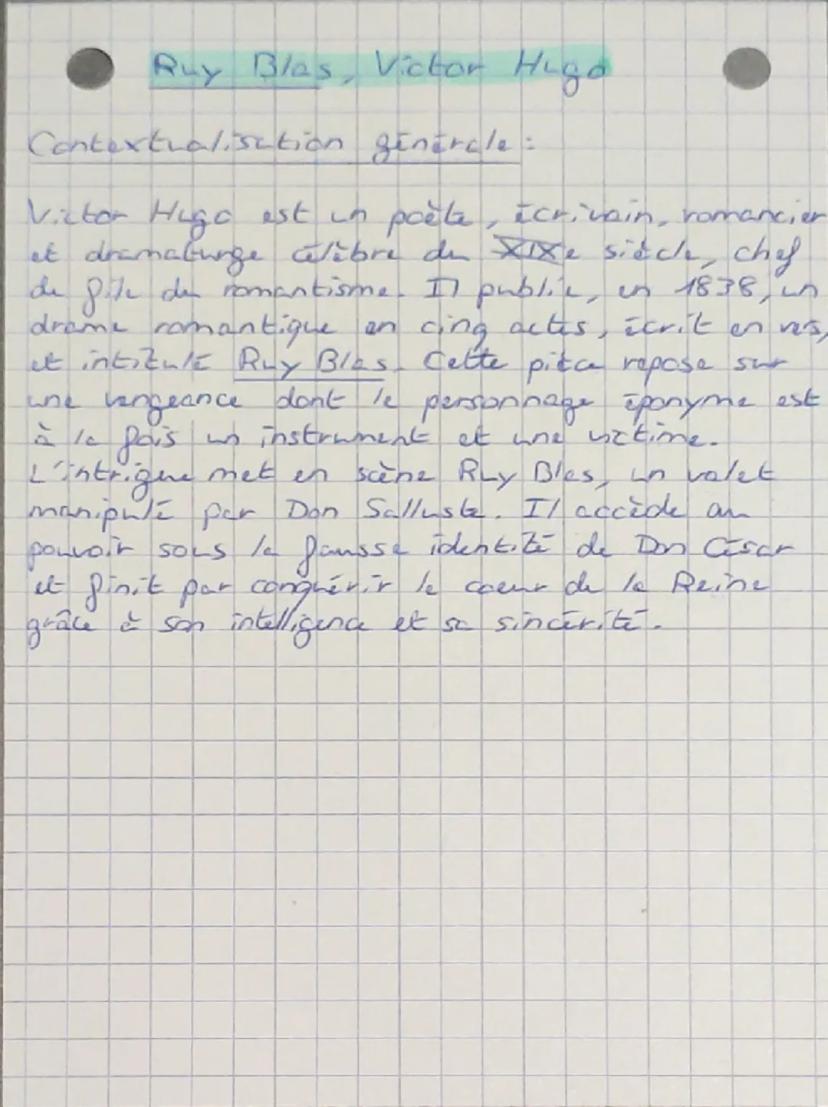 Ruy Blas, Victor Hugo
Contextualisation générale :
Victor Hugo est un poète, écrivain, romancier
et dramaturge célèbre du XIXe siècle, chef
de file du romantisme. Il publie, en 1838, un
drame romantique en cinq actes, écrit en vers,
et intitulé Ruy Blas. Cette pièce repose sur
une vengeance dont le personnage éponyme est
à la fois un instrument et une victime.
L'intrigue met en scène Ruy Blas, un valet
manipulé par Don Salluste. Il accède au
pouvoir sous la fausse identité de Don César
et finit par conquérir le coeur de la Reine
grâce à son intelligence et sa sincérité.